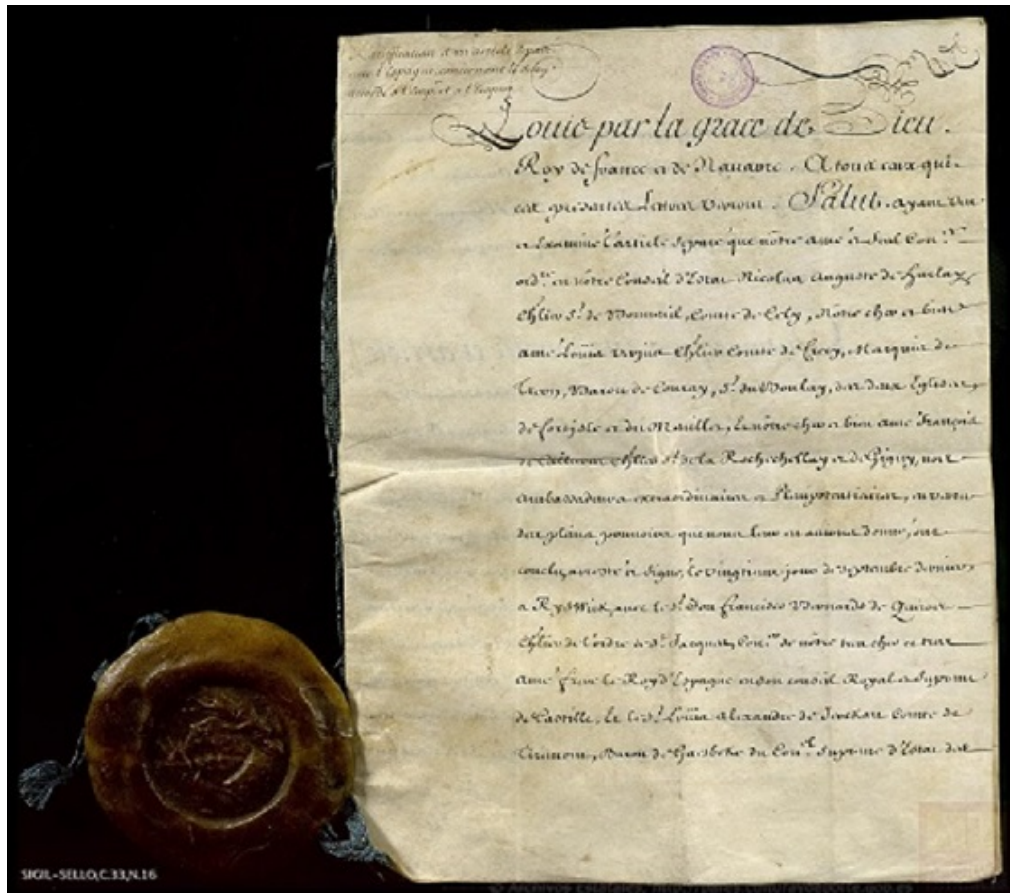 Ratification d'un article separé
avec l'Espagne, concernant le delay
accordé a l'Emp.r et a l'Empire
Louis par la grace de Dieu.
Roy de france et de Nauarre. A tous ceux qui
ces presentes Lettres verront. Salut. ayant veu
et Examiné l'article separé que nôtre amé et feal Con.er
ord.re en nôtre Conseil d'Estat Nicolas auguste de harlay
Chlier S.r de Bonneuil, Comte de Cely, Nôtre cher et bien
amé Loüis Verjus Chlier Comte de Crecy, Marquis de
Treon, Baron de Couvay, S.r du Boulay, des deux Eglises,
de fortisle et du Menillet, Et nôtre cher et bien amé François
de Callieres Chlier S.r de la Rochechellay et de Gigny, nos
ambassadeurs extraordinaires et Plenipotentiaires, en vertu
des plains pouvoirs que nous leur en auions donné, ont
conclu, arresté et signé, le vingtieme jour de septembre dernier
a RysWick, auec le S.r Don francisco Bernardo de Quiros
Chlier de l'ordre de S.t Jacques, Con.er de nôtre tres cher et tres
amé frere le Roy d'Espagne en son conseil Royal et supreme
de Castille, Et le S.r Loüis alexandre de Scockart Comte de
Tirimont, Baron de Gaesbeke du Con.el supreme d'Estat de
SIGIL-SELLO,C.33,N.16
© Archivos Estatales